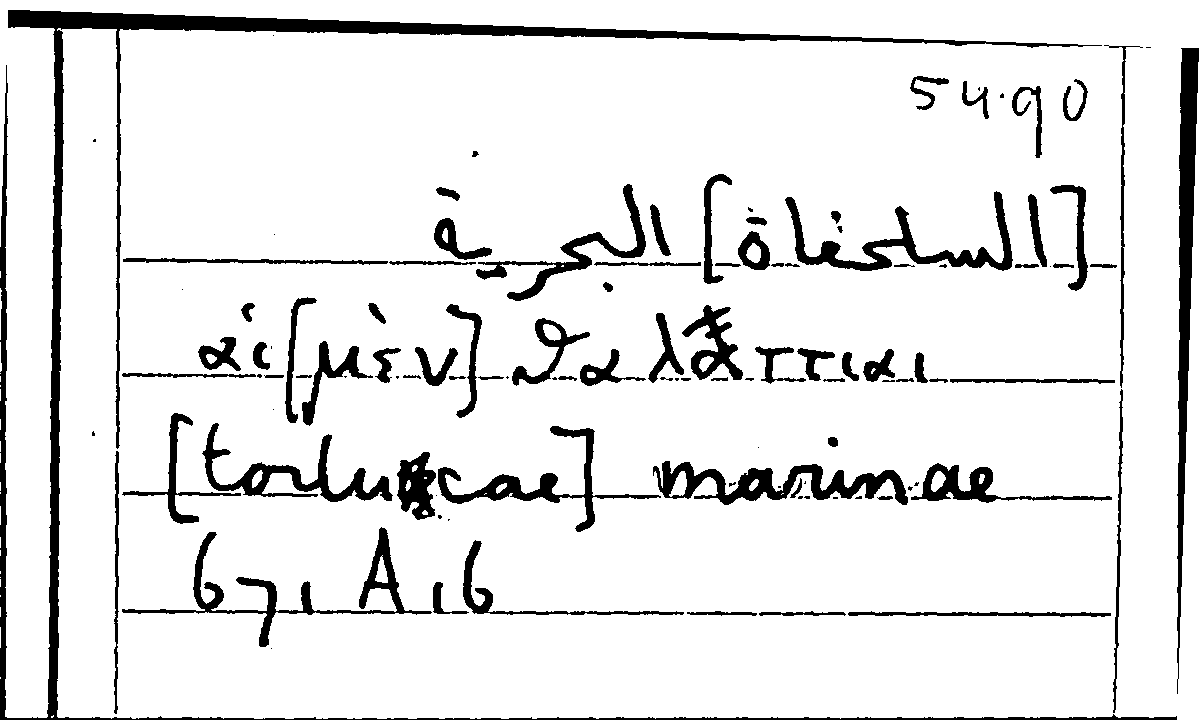 54.90
[السلحفاة] البحرية
αἱ [μὲν] θαλάττιαι
[tortucae] marinae
671 A 16